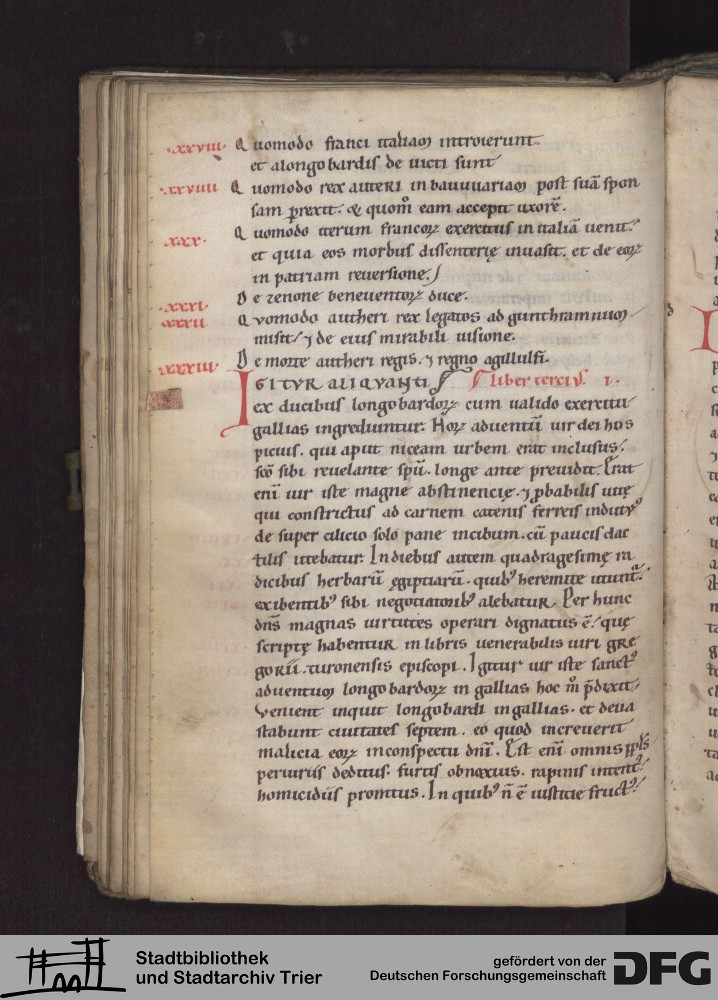 .xxviii. Quomodo franci italiam introierunt.
et alongobardis de uicti sunt
.xxviiii. Quomodo rex auteri in bauuuariam post suā spon
sam prexit. & quom̊ eam accepit uxorē.
.xxx. Quomodo iterum francoꝝ exercitus in italiā uenit.
et quia eos morbus dissenterię inuasit. et de eoꝝ
in patriam reuersione.
.xxxi. De zenone beneuentoꝝ duce.
.xxxii. Quomodo autheri rex legatos ad gunthramnum
misit. ⁊ de eius mirabili uisione.
.xxxiii. De morte autheri regis. ⁊ regno agillulfi.
IGITVR ALIQVANTI liber tercius. i.
ex ducibus longobardoꝝ cum ualido exercitu
gallias ingrediuntur. Hoꝝ aduentū uir dei hos
picius. qui aput niceam urbem erat inclusus.
scō sibi reuelante spū. longe ante preuidit. Erat
enī uir iste magne abstinencię. ⁊ ꝓbabilis uitę
qui constrictus ad carnem catenis ferreis indutꝰ
de super cilicio solo pane incibum. cū paucis dac
tilis utebatur. Indiebus autem quadragesimę ra
dicibus herbarū ęgiptiarū. quibꝰ heremite utunt᷑.
exibentibꝰ sibi negotiatoribꝰ alebatur. Per hunc
dn̄s magnas uirtutes operari dignatus ē. quę
scriptę habentur in libris uenerabilis uiri gre
gorii. turonensis episcopi. Igitur uir iste sanctꝰ
aduentum longobardoꝝ in gallias hoc m̊ p̄dixit.
Venient inquit longobardi ingallias. et deua
stabunt ciuitates septem. eo quod increuerit
malicia eoꝝ inconspectu dn̄i. Est enī omnis ppl̄s
periuriis deditus. furtis obnoxius. rapinis intentꝰ.
homicidiis promtus. In quibꝰ n̄ ē iusticie fructꝰ.
Stadtbibliothek
und Stadtarchiv Trier
gefördert von der
Deutschen Forschungsgemeinschaft
DFG